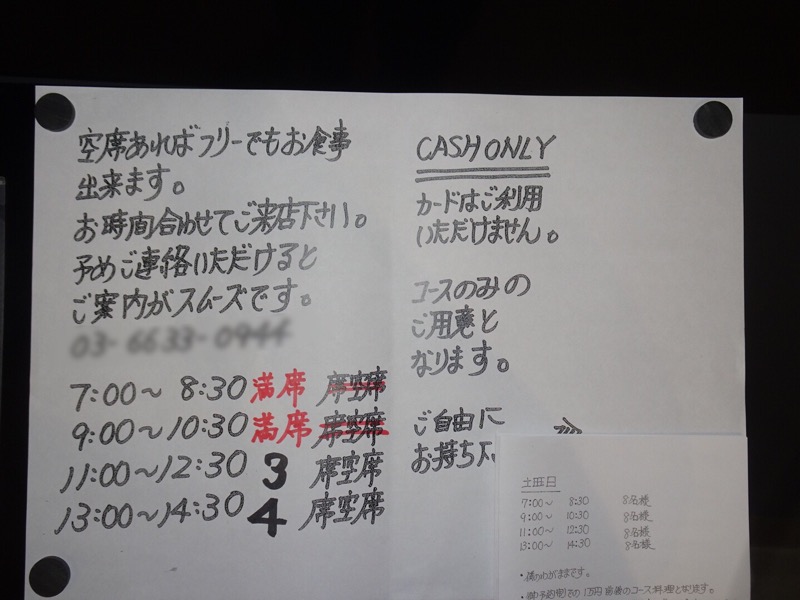 空席あればフリーでもお食事
出来ます。
お時間合わせてご来店下さい。
予めご連絡いただけると
ご案内がスムーズです。
7:00〜 8:30 満席 席空席
9:00〜10:30 満席 席空席
11:00〜12:30 3 席空席
13:00〜14:30 4 席空席
CASH ONLY
カードはご利用
いただけません。
コースのみの
ご用意と
なります。
ご自由に
お持ち下
土曜日
7:00〜 8:30 8名様
9:00〜 10:30 8名様
11:00〜 12:30 8名様
13:00〜 14:30 8名様
・僕のわがままです。